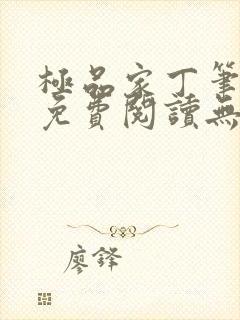 極品家丁筆
免費閱讀無
廖鋒